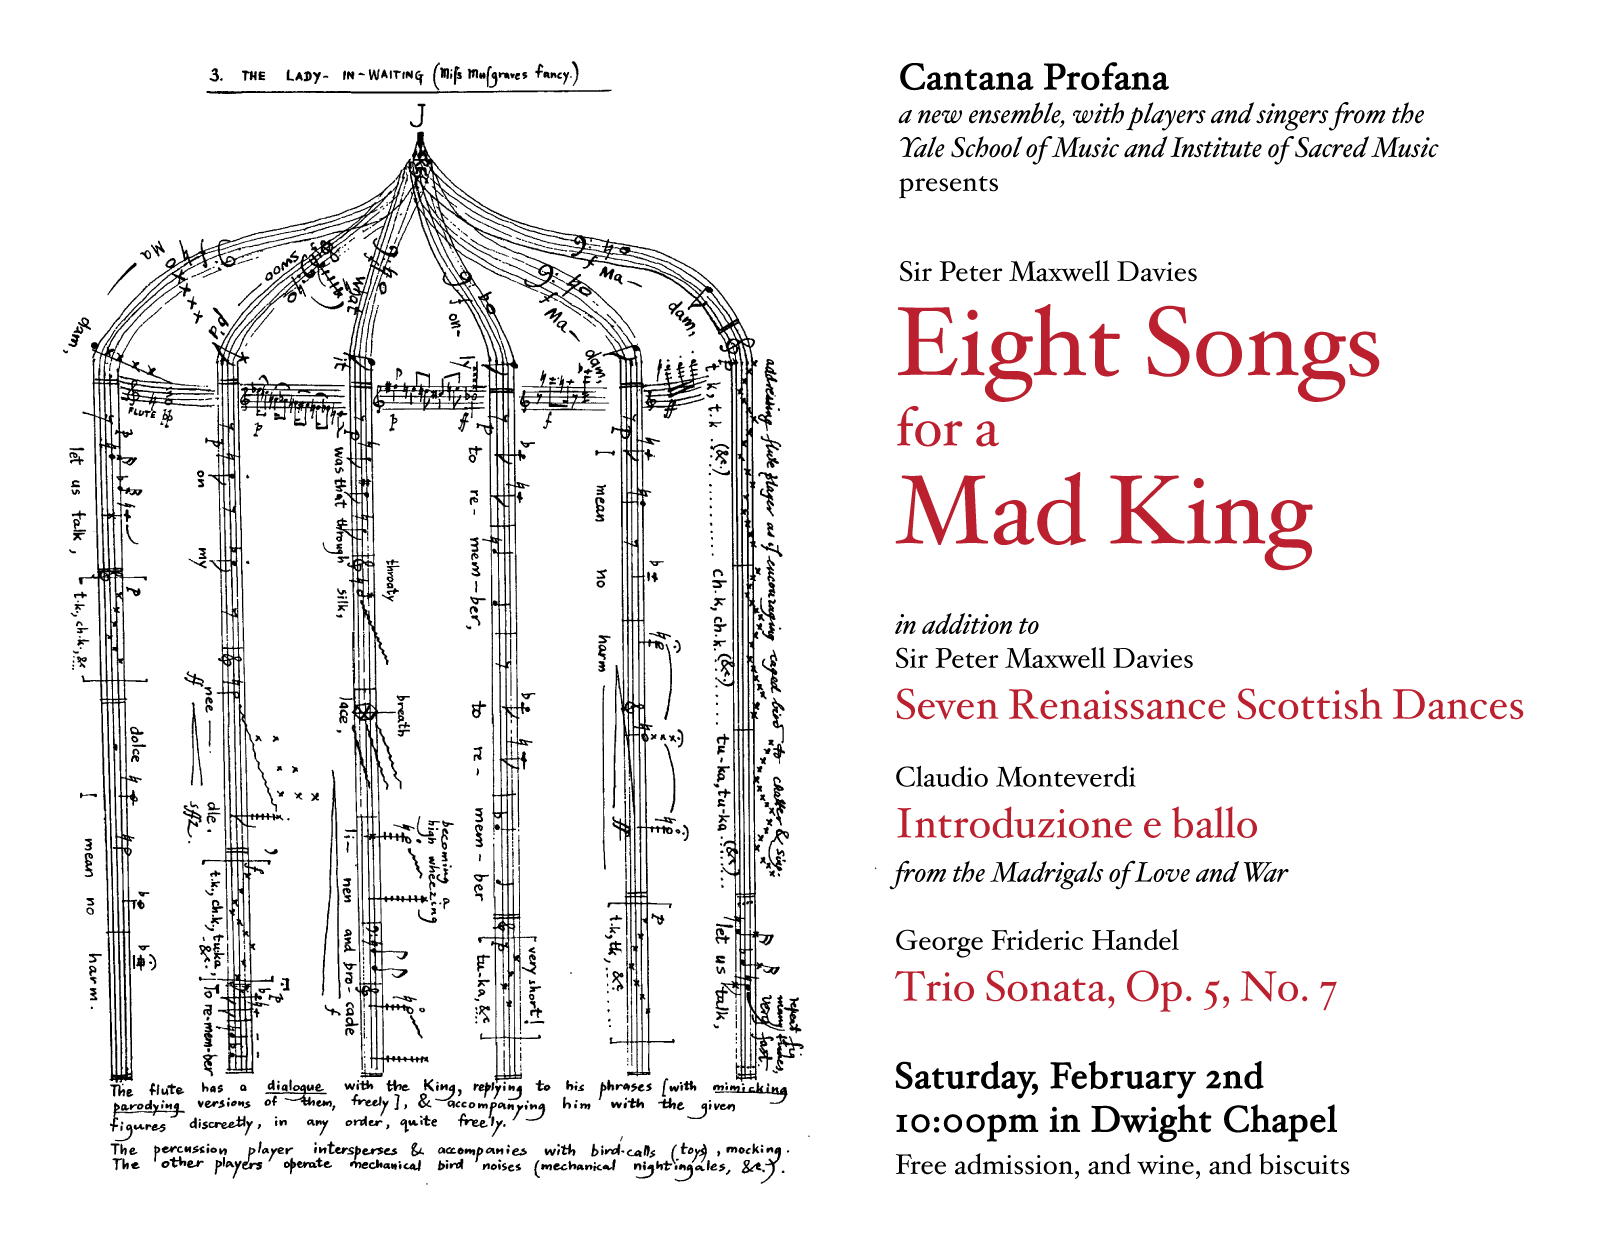 3. THE LADY-IN-WAITING (Miſs Muſgraves Fancy.)
J
Ma
dam,
let us talk,
[t.k, ch.k, &c....]
dolce
I mean no harm.
FLUTE
swoo
on
my
nee
ff
dle.
sffz.
[t.k, ch.k, tu.ka, &c.]
To re-mem-ber
What
it
was that through silk,
throaty
lace,
breath
li-nen and bro-cade
becoming a
high wheezing
on-
ly
to re-mem-ber,
to re-mem-ber
[tu-ka, &c]
very short!
Ma-
dam,
I mean no harm
[t.k, tk, &c......]
Ma-
dam,
t.k, t.k.(&c.).......... ch.k, ch.k.(&c.)..... tu-ka, tu-ka.(&c.)... let us talk,
addressing flute player as if encouraging caged bird to chatter & sing.
repeat fig
many times,
very fast.
The flute has a dialogue with the King, replying to his phrases [with mimicking
parodying versions of them, freely], & accompanying him with the given
figures discreetly, in any order, quite freely.
The percussion player intersperses & accompanies with bird-calls (toys), mocking.
The other players operate mechanical bird noises (mechanical nightingales, &c.).
Cantana Profana
a new ensemble, with players and singers from the
Yale School of Music and Institute of Sacred Music
presents
Sir Peter Maxwell Davies
Eight Songs
for a
Mad King
in addition to
Sir Peter Maxwell Davies
Seven Renaissance Scottish Dances
Claudio Monteverdi
Introduzione e ballo
from the Madrigals of Love and War
George Frideric Handel
Trio Sonata, Op. 5, No. 7
Saturday, February 2nd
10:00pm in Dwight Chapel
Free admission, and wine, and biscuits